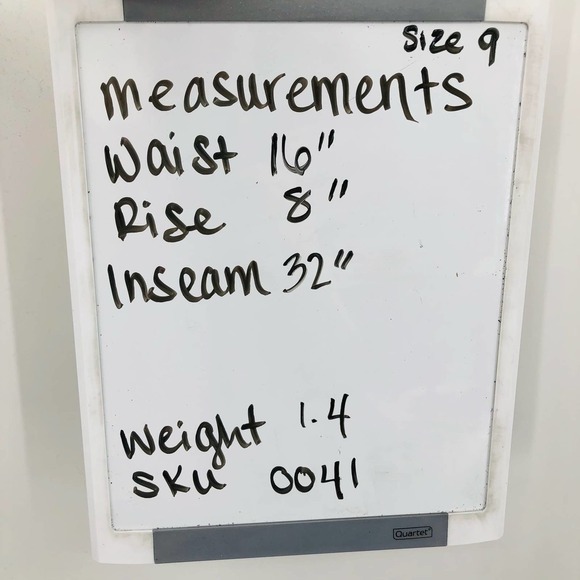 Size 9
measurements
Waist 16"
Rise 8"
Inseam 32"
Weight 1.4
SKU 0041
Quartet